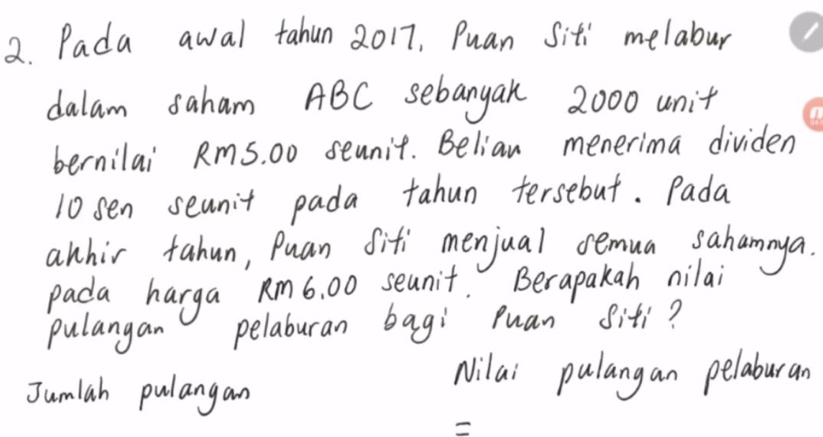 2. Pada awal tahun 2017, Puan Siti melabur
dalam saham ABC sebanyak 2000 unit
bernilai RM5.00 seunit. Belian menerima dividen
10 sen seunit pada tahun tersebut. Pada
akhir tahun, Puan Siti menjual semua sahamnya.
pada harga RM 6.00 seunit. Berapakah nilai
pulangan pelaburan bagi Puan Siti?
Jumlah pulangan
Nilai pulangan pelaburan
=